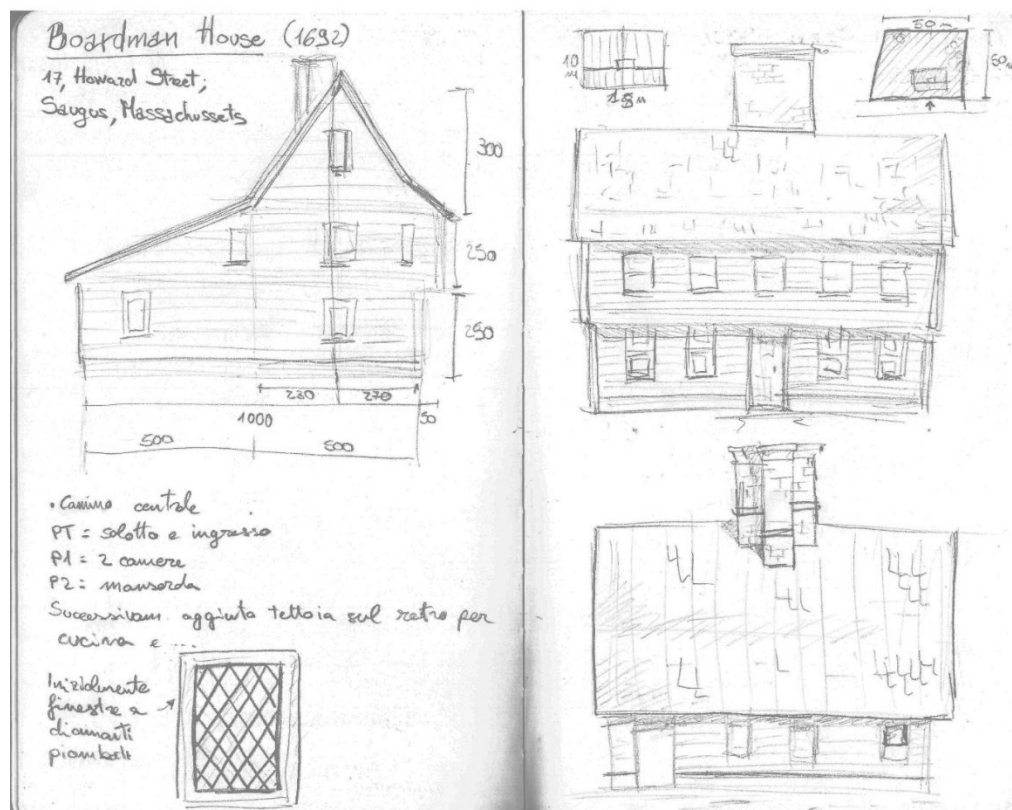 Boardman House (1692)
17, Howard Street;
Saugos, Massachussets
300
250
250
230 270
1000 50
500 500
• Camino centrale
PT = salotto e ingresso
P1 = 2 camere
P2 = mansarda
Successivam. aggiunta tettoia sul retro per
cucina e ...
Inizialmente
finestre a
diamanti
piombati
10
m
15 m
50 m
50m